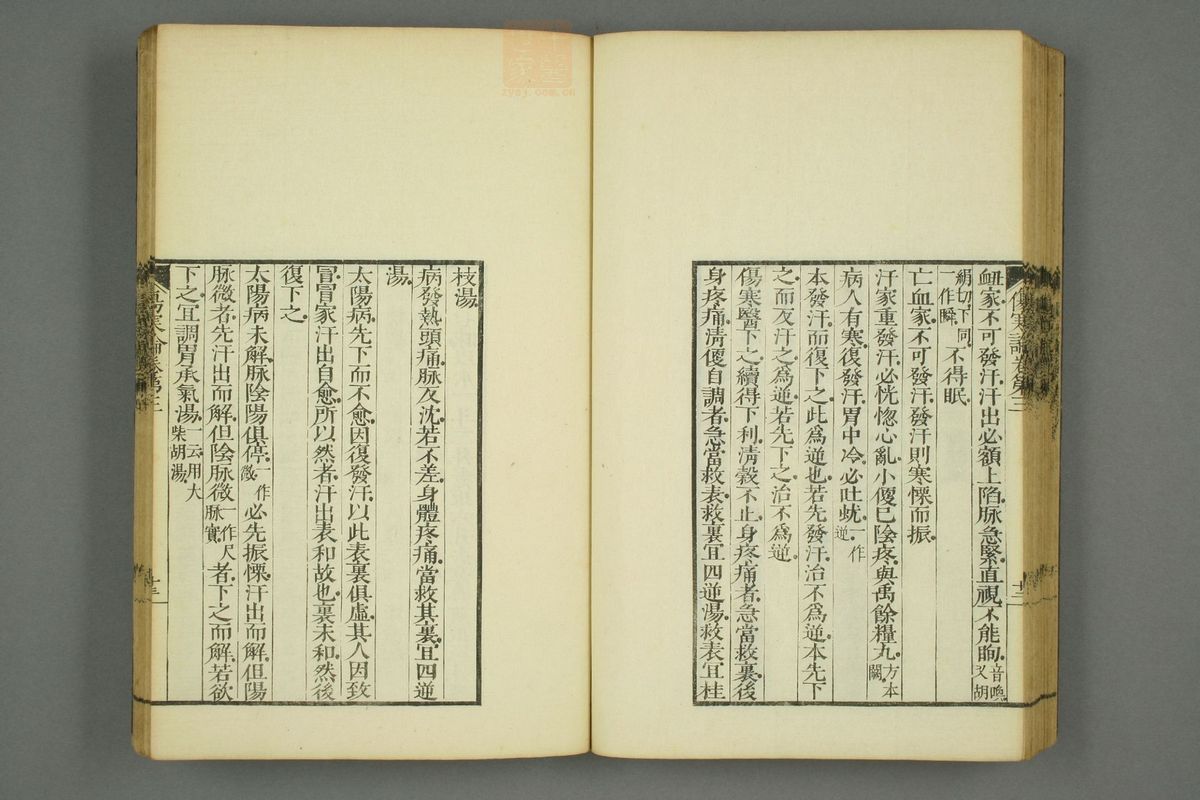 衄家不可發汗汗出必額上陷脉急緊直視不能眴音喚又胡
絹切下同一作瞬不得眠
亡血家不可發汗發汗則寒慄而振
汗家重發汗必恍惚心亂小便已陰疼與禹餘糧丸方本闕
病人有寒復發汗胃中冷必吐蚘一作逆
本發汗而復下之此爲逆也若先發汗治不爲逆本先下
之而反汗之爲逆若先下之治不爲逆
傷寒醫下之續得下利清穀不止身疼痛者急當救裏後
身疼痛清便自調者急當救表救裏宜四逆湯救表宜桂
傷寒論卷第三
十二
枝湯
病發熱頭痛脉反沈若不差身體疼痛當救其裏宜四逆
湯
太陽病先下而不愈因復發汗以此表裏俱虛其人因致
冒冒家汗出自愈所以然者汗出表和故也裏未和然後
復下之
太陽病未解脉陰陽俱停一作微必先振慄汗出而解但陽
脉微者先汗出而解但陰脉微一作尺脉實者下之而解若欲
下之宜調胃承氣湯一云用大柴胡湯
傷寒論卷第三
十三
zysj.com.cn